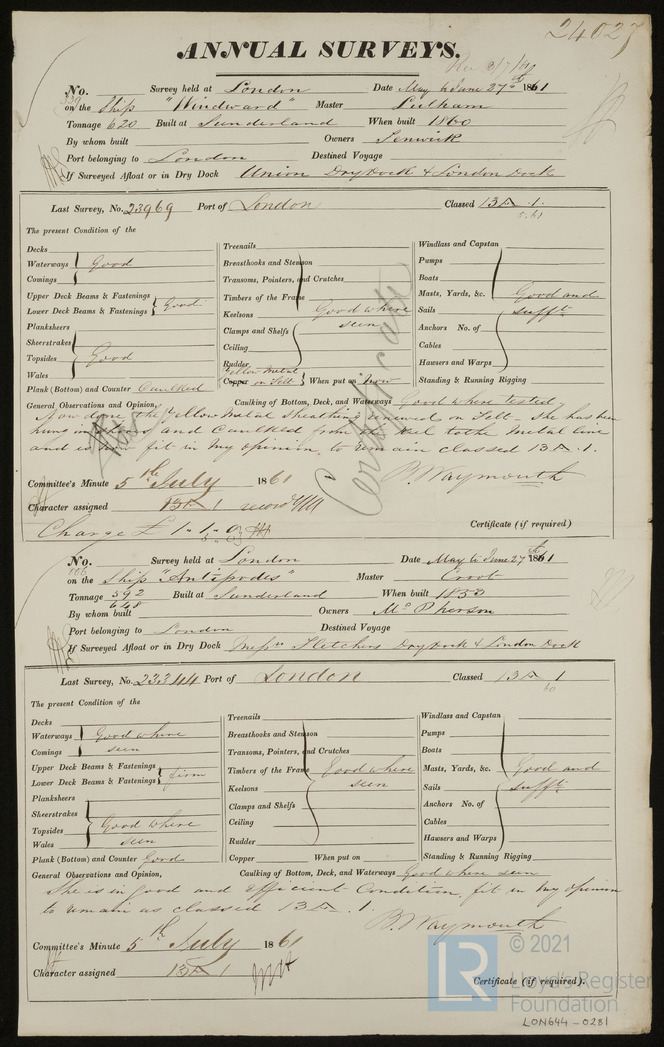 24027
ANNUAL SURVEYS.
No. 339 Survey held at London Date May to June 27th 1861
on the Ship "Windward" Master Pulham
Tonnage 620 Built at Sunderland When built 1860
By whom built Owners Fenwick
Port belonging to London Destined Voyage
If Surveyed Afloat or in Dry Dock Union Dry Dock & London Dock
Last Survey, No. 23969 Port of London Classed 13 A 1.
5.61
The present Condition of the
Decks
Waterways
Comings
Good
Upper Deck Beams & Fastenings
Lower Deck Beams & Fastenings
Good
Planksheers
Sheerstrakes
Topsides
Wales
Good
Plank (Bottom) and Counter Caulked
Treenails
Breasthooks and Stemson
Transoms, Pointers, and Crutches
Timbers of the Frame
Keelsons
Clamps and Shelfs
Ceiling
Rudder
Good where seen
Yellow Metal
Copper on Felt When put on Now
Windlass and Capstan
Pumps
Boats
Masts, Yards, &c.
Sails
Anchors No. of
Cables
Hawsers and Warps
Good and sufft
Standing & Running Rigging
General Observations and Opinion, Caulking of Bottom, Deck, and Waterways Good where tested
Now done the Yellow Metal Sheathing renewed on Felt. She has been
hung in and Caulked from the Keel to the Metal line
and is now fit in my opinion, to remain classed 13 A 1.
B. Waymouth
Certificate
Committee's Minute 5th July 1861
Character assigned 13 A 1
Charge £ 1 " 1 " 0 Certificate (if required)
No. 106 Survey held at London Date May to June 27th 1861
on the Ship "Antipodes" Master Croot
Tonnage 592 Built at Sunderland When built
648
By whom built Owners McPherson
Port belonging to London Destined Voyage
If Surveyed Afloat or in Dry Dock Messrs Fletchers Dry Dock & London Dock
Last Survey, No. 23344 Port of London Classed 13 A 1
60
The present Condition of the
Decks
Waterways
Comings
Good where seen
Upper Deck Beams & Fastenings
Lower Deck Beams & Fastenings
firm
Planksheers
Sheerstrakes
Topsides
Wales
Good where seen
Plank (Bottom) and Counter Good
Treenails
Breasthooks and Stemson
Transoms, Pointers, and Crutches
Timbers of the Frame
Keelsons
Clamps and Shelfs
Ceiling
Rudder
Good where seen
Copper When put on
Windlass and Capstan
Pumps
Boats
Masts, Yards, &c.
Sails
Anchors No. of
Cables
Hawsers and Warps
Good and sufft
Standing & Running Rigging
General Observations and Opinion, Caulking of Bottom, Deck, and Waterways Good where seen
She is in good and efficient Condition, fit in my opinion
to remain as classed 13 A 1.
B. Waymouth
Committee's Minute 5th July 1861
Character assigned 13 A 1
Certificate (if required).
LR © 2021
Lloyd's Register
Foundation
LON644-0281